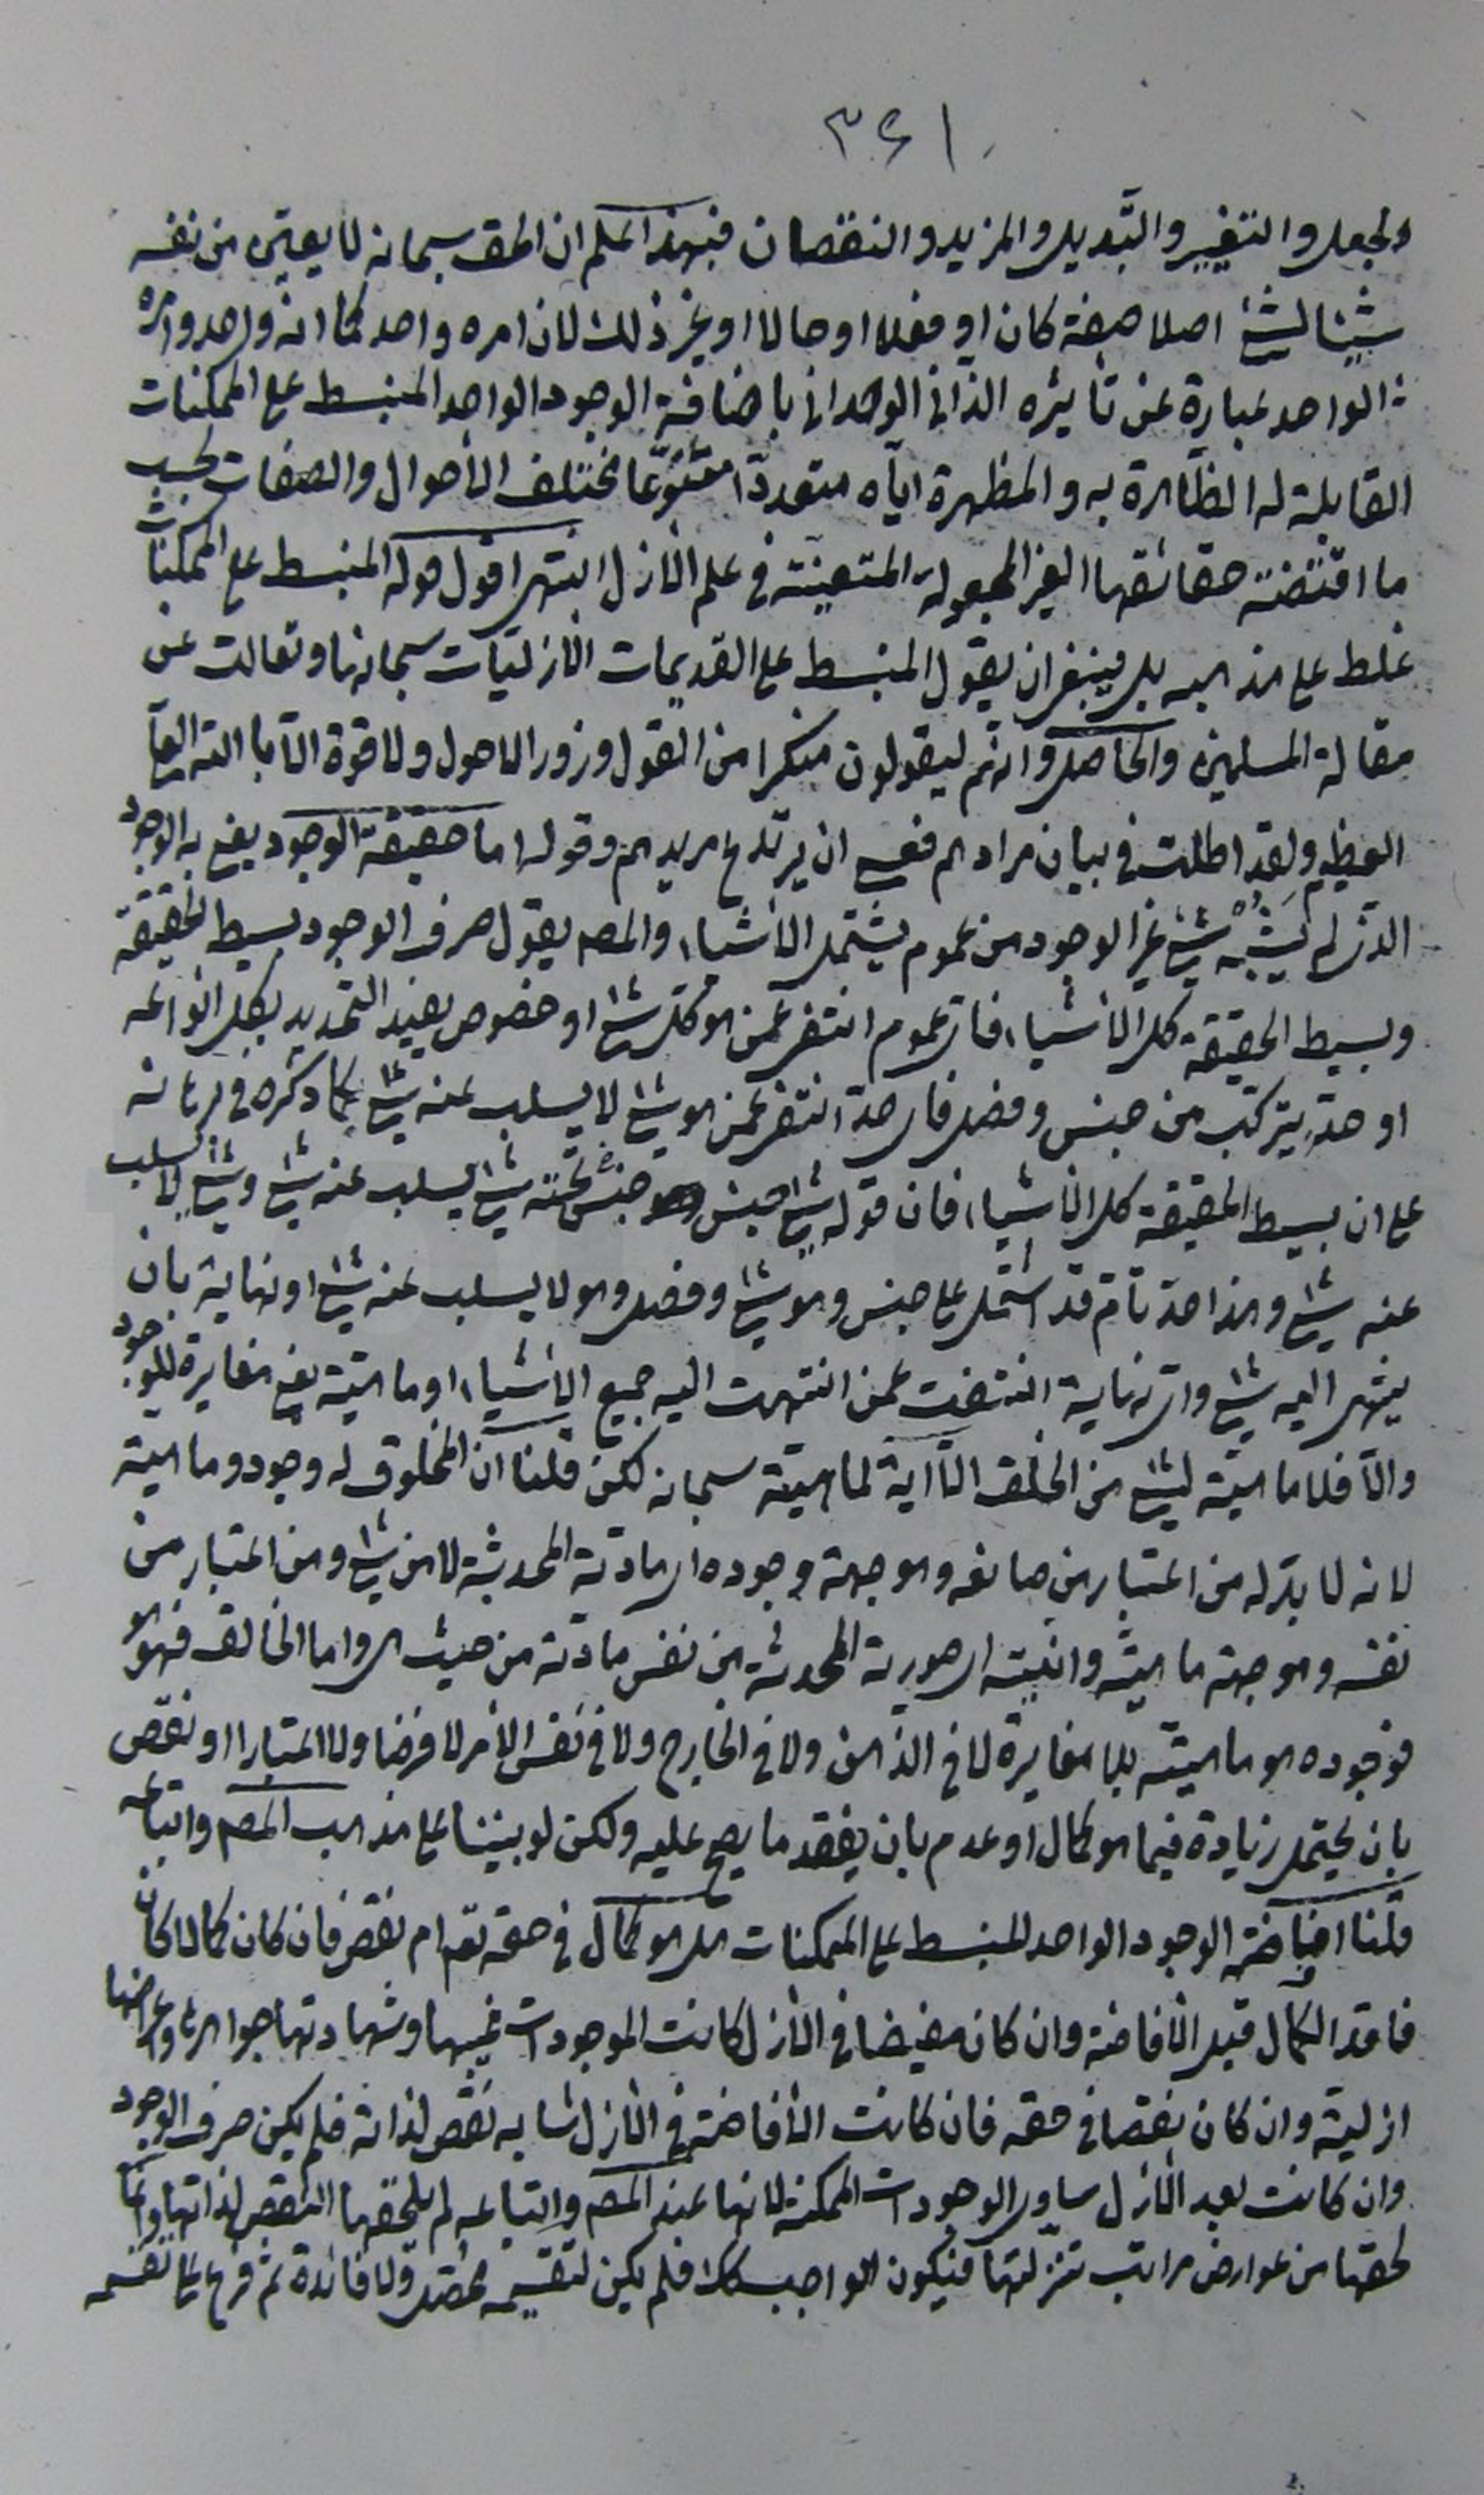 ٣٤١
والجعل والتغيير والتبديل والمزيد والنقصان فبهذا اعلم ان الحق سبحانه لا يعين من نفسه
شيئا لشئ اصلا صفة كان او فعلا او حالا او غير ذلك لان امره واحد كما انه واحد وامره
الواحد عبارة عن تأثيره الذاتى الوحدانى باضافة الوجود الواحد المنبسط على الممكنات
القابلة له الظاهرة به والمظهرة اياه متعددا متنوعا مختلف الأحوال والصفات بحسب
ما اقتضته حقائقها الغير المجعولة المتعينة فى علم الأزل انتهى اقول قوله المنبسط على الممكنات
غلط على مذهبه بل ينبغى ان يقول المنبسط على القديمات الأزليات سبحانه وتعالت عن
مقالة المسلمين والحاصل وانهم ليقولون منكرا من القول وزورا ولا حول ولا قوة الا بالله العلى
العظيم ولقد اطلت فى بيان مرادهم فعسى ان يرتدع مريدهم وقوله اما حقيقة الوجود يعنى به الوجود
الذى لم يشبه شئ غير الوجود من عموم يشتمل الأشياء والمص يقول صرف الوجود بسيط الحقيقة
وبسيط الحقيقة كل الأشياء فاى عموم انتفى عمن هو كل شئ او خصوص يفيد التحديد بكل انواعه
او حد يتركب من جنس وفصل فاى حد انتفى عمن هو شئ لا يسلب عنه شئ كما ذكره فى برهانه
على ان بسيط الحقيقة كل الأشياء فان قوله شئ جنس تحته شئ يسلب عنه شئ وشئ لا يسلب
عنه شئ وهذا حد تام قد اشتمل على جنس وهو شئ وفصل وهو لا يسلب عنه شئ او نهاية بان
ينتهى اليه شئ واى نهاية انتفت عمن انتهت اليه جميع الأشياء او ماهية يعنى مغايرة للوجود
والا فلا ماهية لشئ من الخلق الا اية لماهيته سبحانه لكن قلنا ان المخلوق له وجود وماهية
لانه لا بد له من اعتبار من صانعه وهو جهة وجوده اى مادته المحدثة لا من شئ ومن اعتبار من
نفسه وهو جهة ماهيته وانيته اى صورته المحدثة من نفس مادته من حيث هى واما الخالق فهو هو
فوجوده هو ماهيته بلا مغايرة لا فى الذهن ولا فى الخارج ولا فى نفس الأمر لا فرضا ولا اعتبارا او نقص
بان يحتمل زيادة فيما هو كمال او عدم بان يفقد ما يصح عليه ولكن لو بنينا على مذهب المص واتباعه
قلنا افاضة الوجود الواحد المنبسط على الممكنات هل هو كمال فى حقه تعم ام نقص فان كان كمالا كان
فاقد الكمال قبل الأفاضة وان كان مفيضا فى الأزل كانت الموجودات غيبها وشهادتها جواهرها واعراضها
ازلية وان كان نقصا فى حقه فان كانت الأفاضة فى الأزل شابه نقص لذاته فلم يكن صرف الوجود
وان كانت بعد الأزل ساوى الوجودات الممكنة لانها عند المص واتباعه لم يلحقها النقص لذاتها وانما
لحقها من عوارض مراتب تنزلتها فيكون الواجب كك فلم يكن لتقسيمه محصل ولا فائدة ثم فرع على تقسيمه